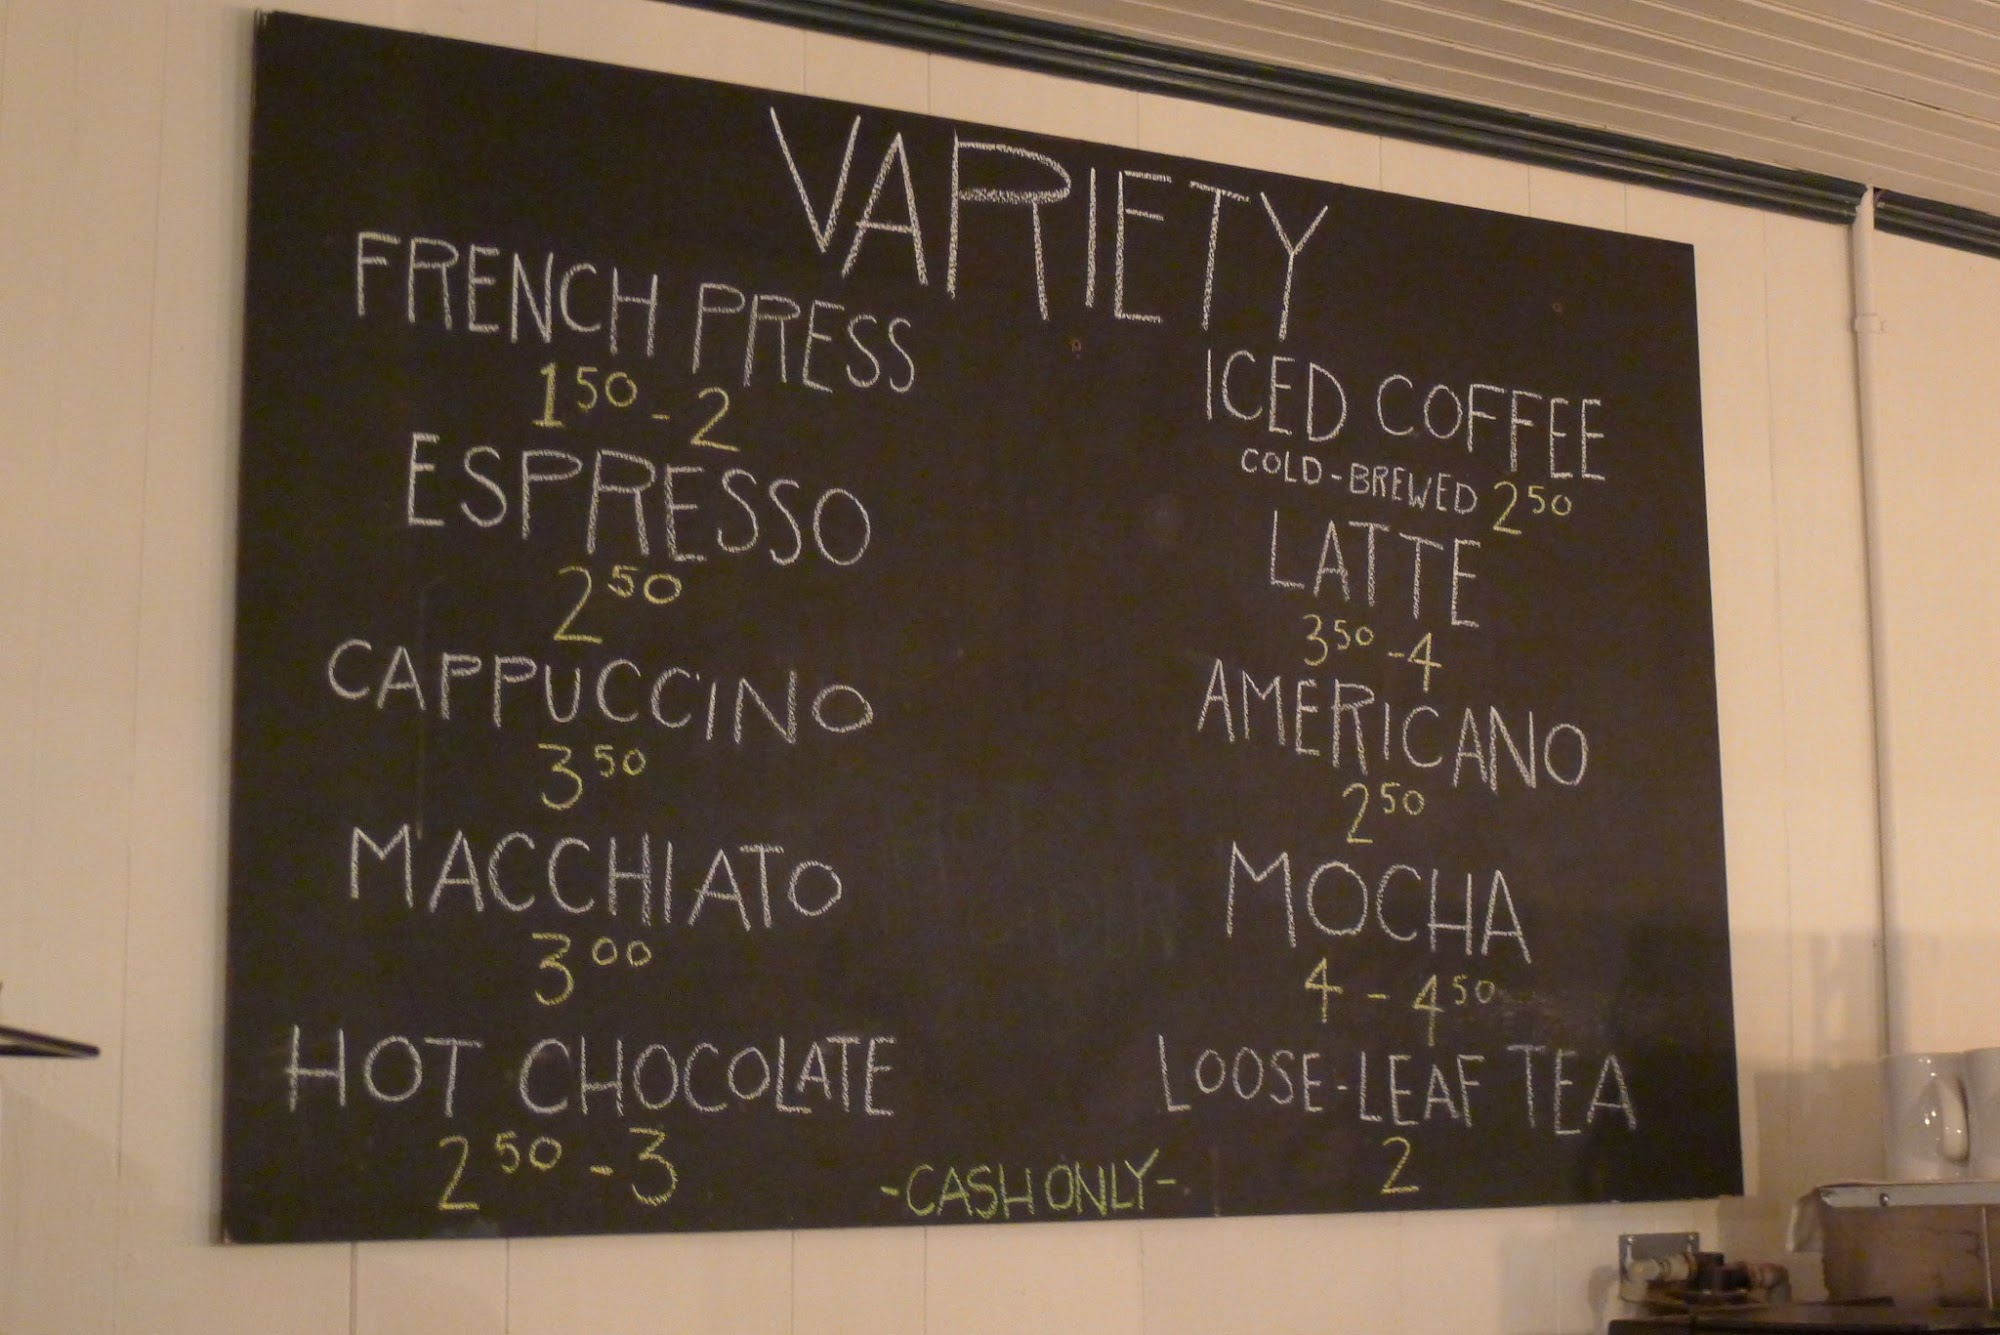 VARIETY
FRENCH PRESS
1 50 - 2
ESPRESSO
2 50
CAPPUCCINO
3 50
MACCHIATO
3 00
HOT CHOCOLATE
2 50 - 3
ICED COFFEE
COLD-BREWED 2 50
LATTE
3 50 - 4
AMERICANO
2 50
MOCHA
4 - 4 50
LOOSE-LEAF TEA
2
-CASH ONLY-